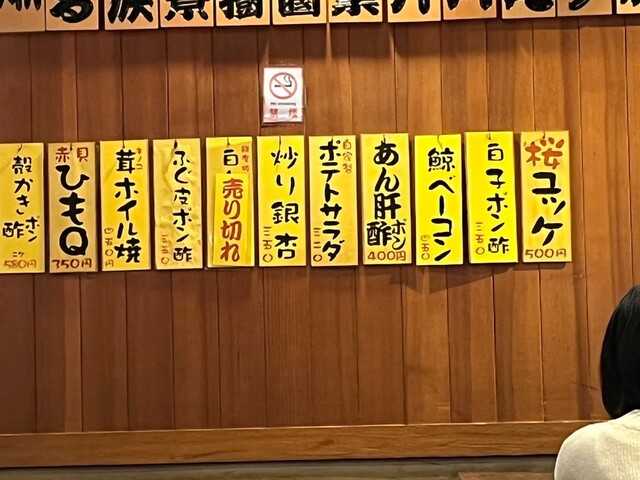 禁煙
桜ユッケ
500円
白子ポン酢
三五〇
鯨ベーコン
四五〇
あん肝ポン酢
400円
自家製
ポテトサラダ
三二〇
炒り銀杏
三五〇
売り切れ
ふぐ皮ポン酢
三五〇
キノコ
茸ホイル焼
四五〇円
赤貝
ひもQ
350円
殻かきポン酢
二ケ
580円